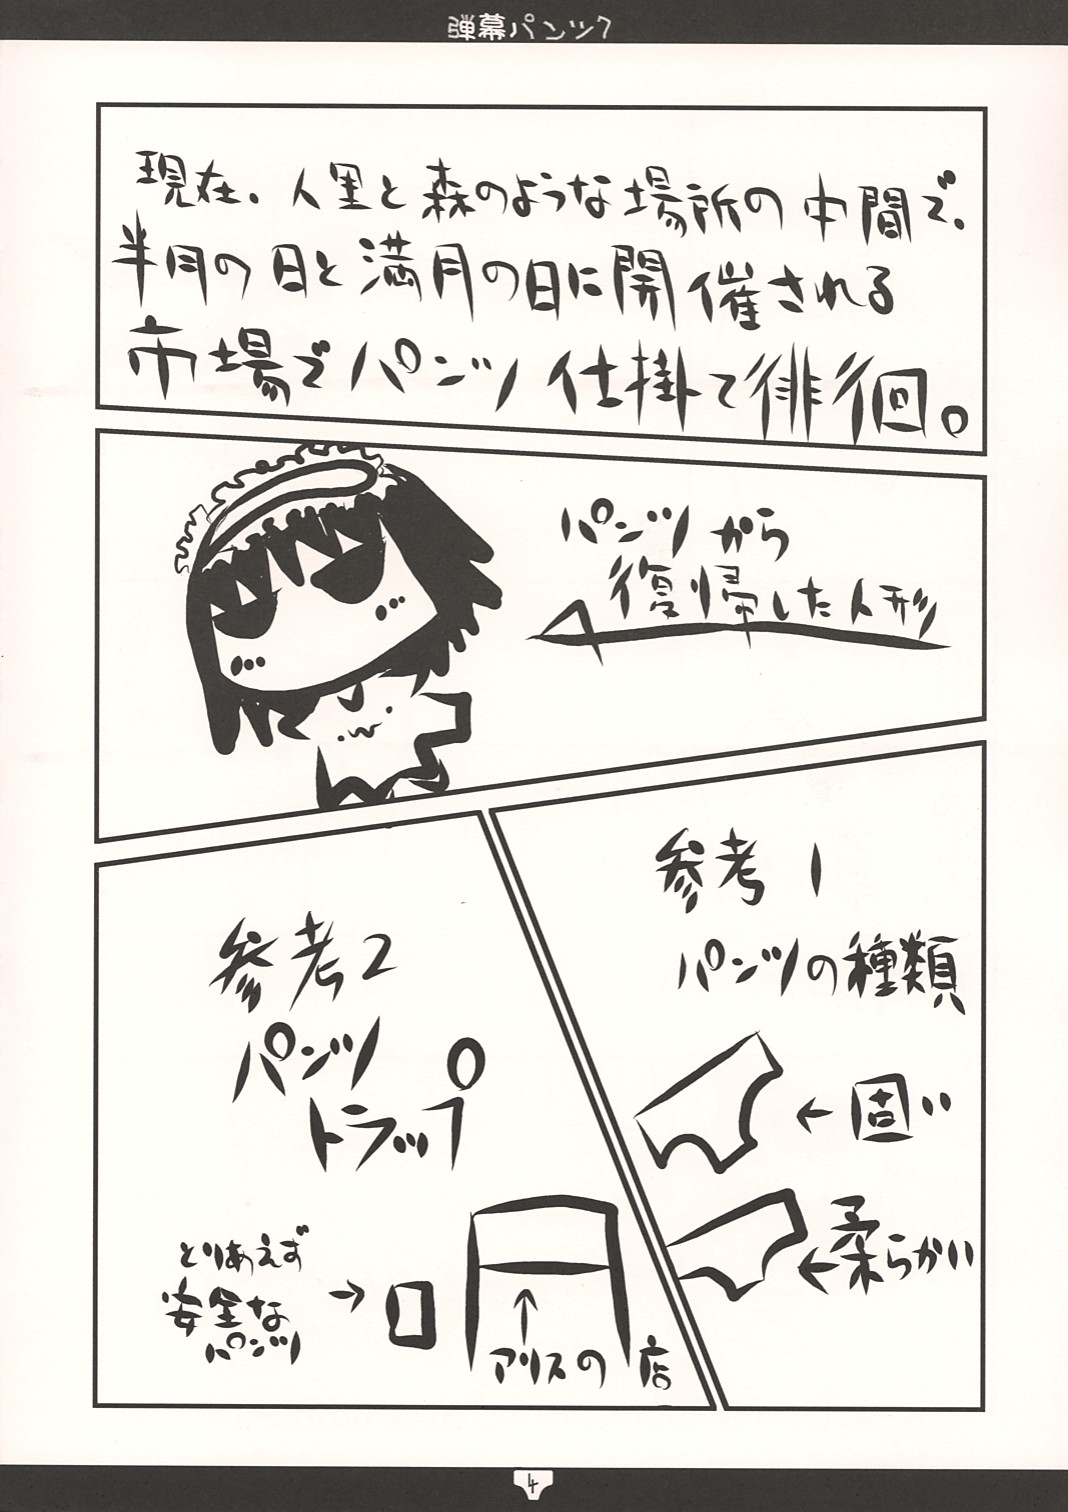 弾幕パンツ7
現在、人里と森のような場所の中間で、
半月の日と満月の日に開催される
市場でパンツ仕掛て徘徊。
パンツから
復帰した人形ツ
参考1
パンツの種類
←固い
←柔らかい
参考2
パンツ
トラップ
とりあえず
安全な
パンツ
→
↑
アリスの店
4